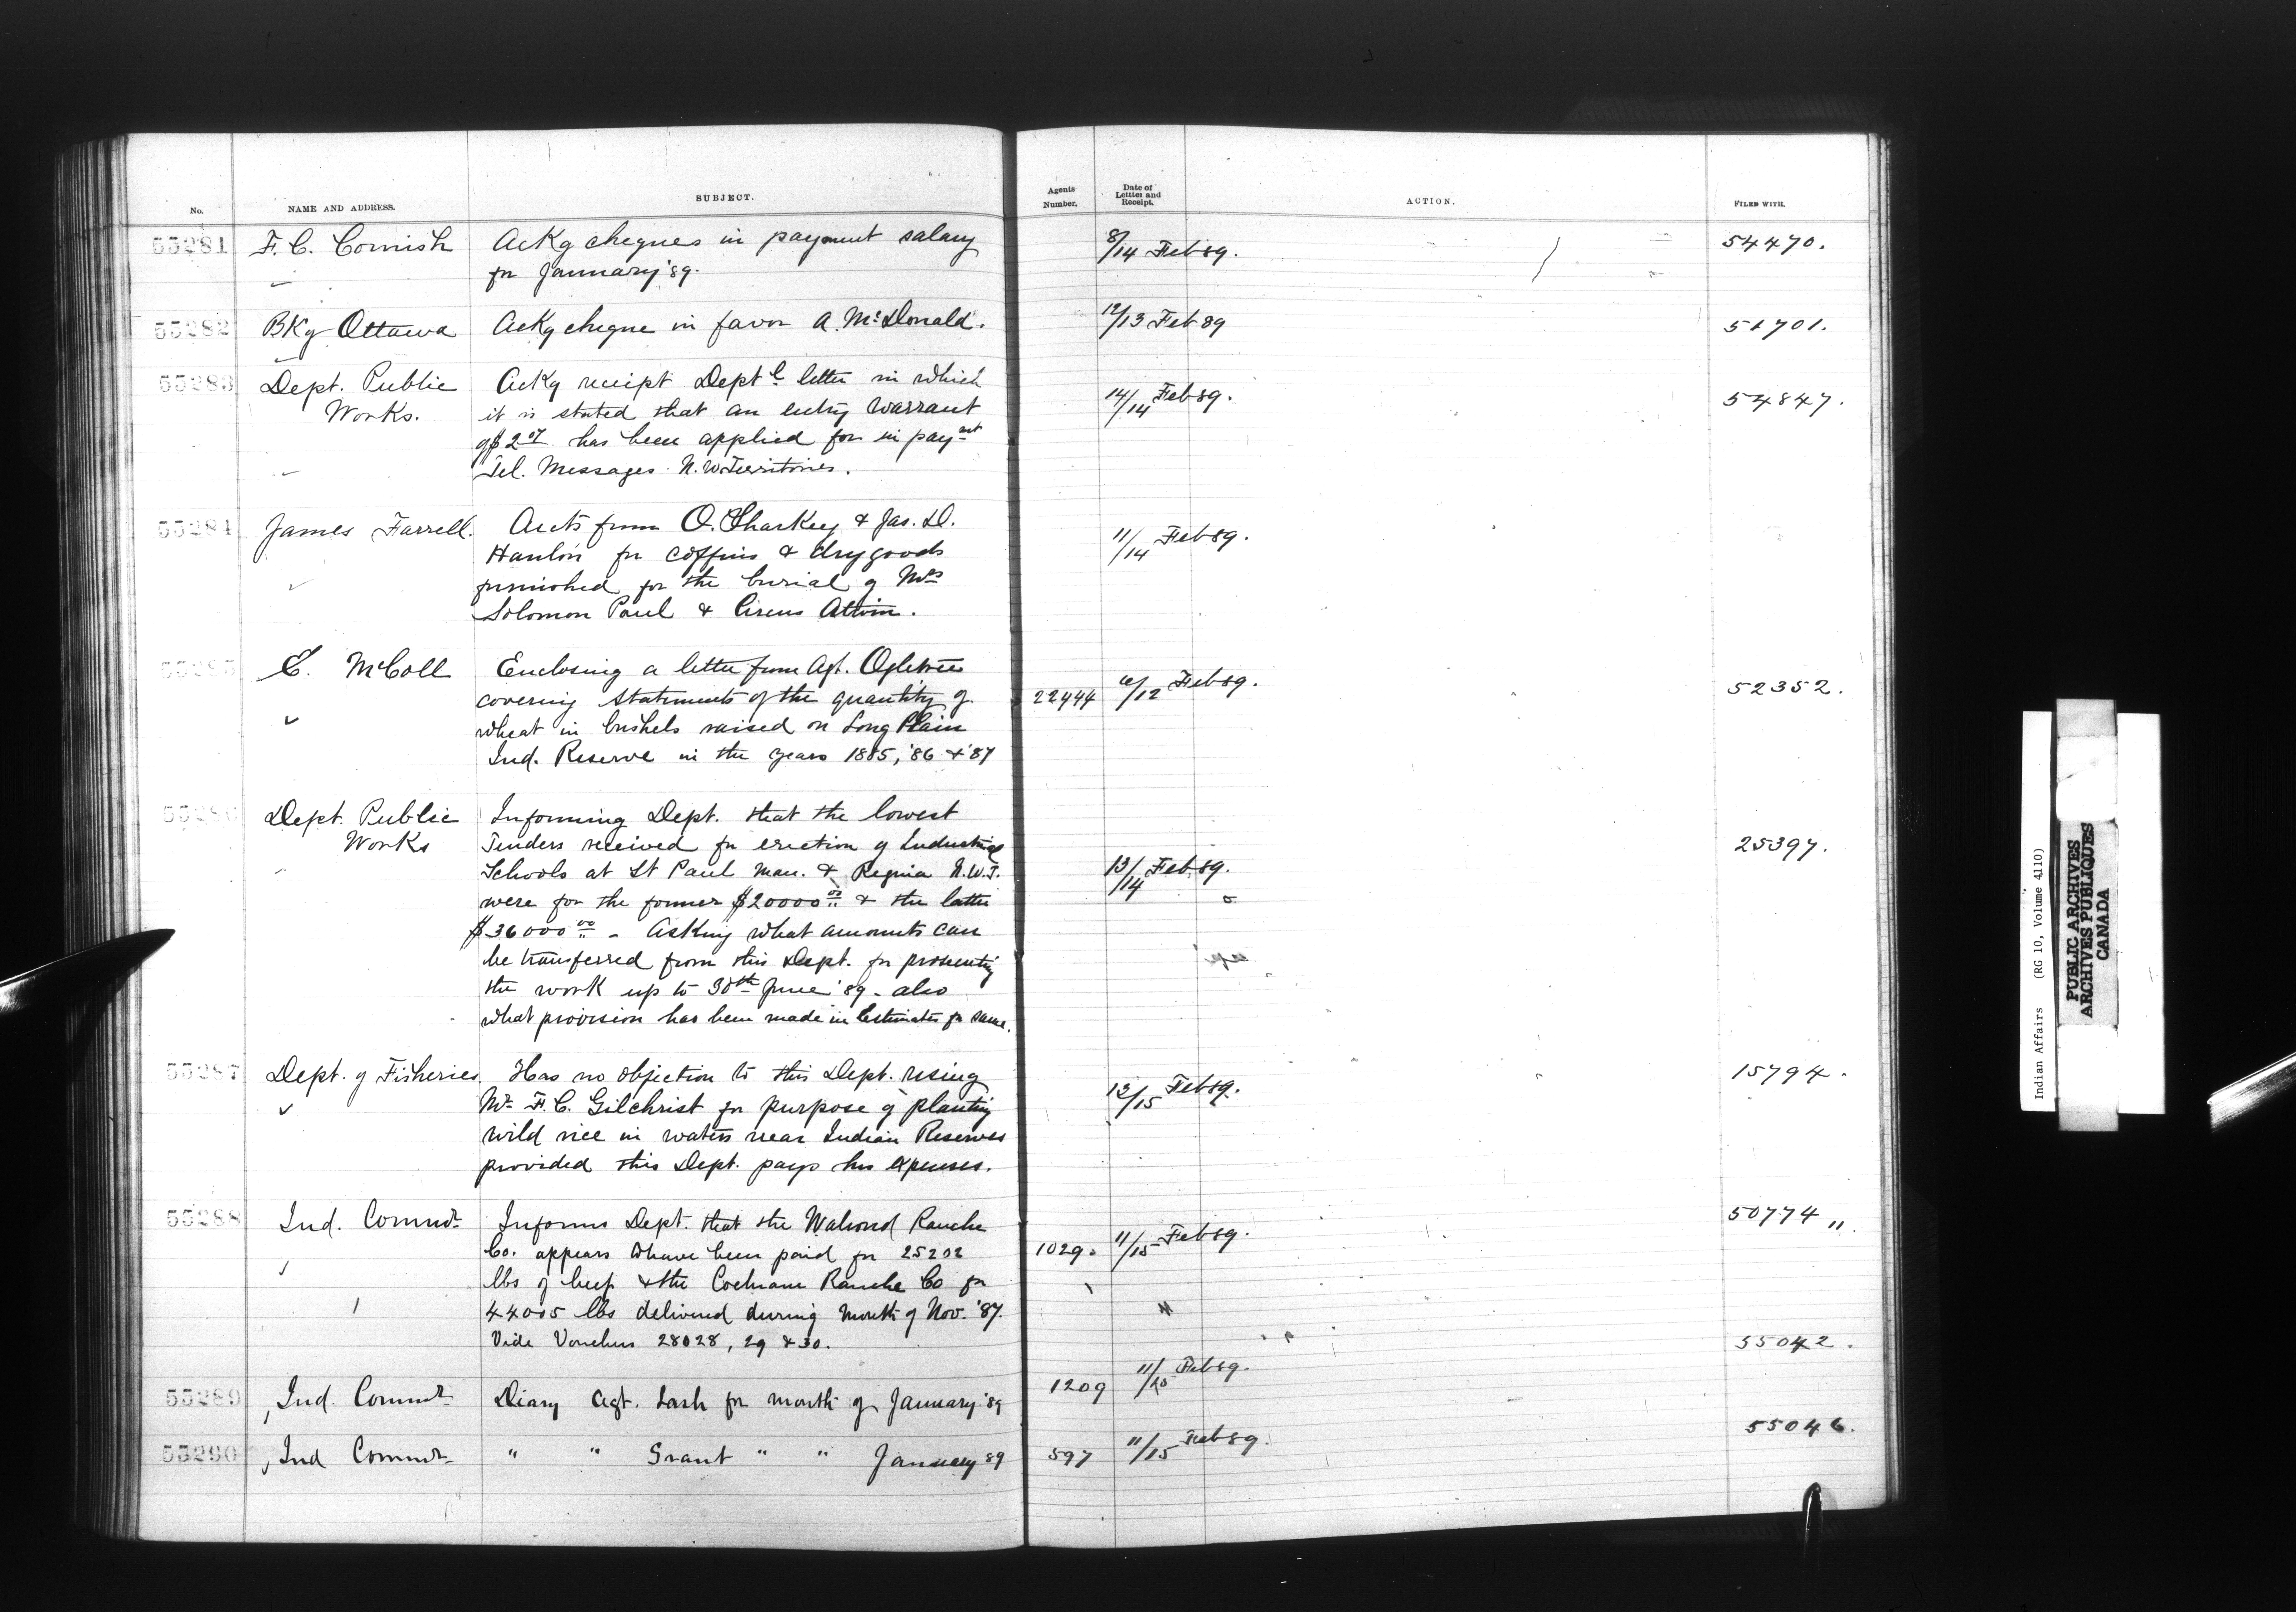 No. NAME AND ADDRESS. SUBJECT. Agents Number. Date of Letter and Receipt. ACTION. FILED WITH.
55281 F. C. Cornish Ackg cheques in payment salary 8/14 Feb 89. 54470.
for January '89.
55282 BKg Ottawa Ackg cheque in favor A. McDonald. 12/13 Feb 89 51701.
55283 Dept. Public Ackg receipt Deptl letter in which 14/14 Feb 89. 54847.
Works. it is stated that an entry warrant
of $2 has been applied for in paymt
Tel. Messages N. W. Territories.
55284 James Farrell. Accts from O. Sharkey & Jas. D. 11/14 Feb 89.
Hanlon for coffins & dry goods
furnished for the burial of Mrs
Solomon Paul &
55285 E. McColl Enclosing a letter from Agt. Ogletree
covering statements of the quantity of 22444 /12 Feb 89. 52352.
wheat in bushels raised on Long Plain
Ind. Reserve in the years 1885, '86 & '87
55286 Dept. Public Informing Dept. that the lowest
Works Tenders received for erection of Industrial 25397.
Schools at St Paul Man. & Regina N.W.T. 13/14 Feb 89.
were for the former $20000 00 & the latter
$36000 00 - Asking what amounts can
be transferred from this Dept. for prosecuting
the work up to 30th June '89 - also
what provision has been made in Estimates for same.
55287 Dept. of Fisheries. Has no objection to this Dept. using 15794.
Mr F. C. Gilchrist for purpose of planting 13/15 Feb 89.
wild rice in waters near Indian Reserves
provided this Dept. pays his expenses.
55288 Ind. Commr Informs Dept. that the Walrond Ranche 50774 "
Co. appears to have been paid for 25202 1029. 11/15 Feb 89.
lbs of beef & the Cochrane Ranche Co for
44005 lbs delivered during month of Nov. '87.
Vide Vouchers 28028, 29 & 30.
55289 Ind. Commr Diary Agt. Lash for month of January '89 1209 11/15 Feb 89. 55042.
55290 Ind Commr " " Grant " " January 89 597 11/15 Feb 89. 55046.
Indian Affairs (RG 10, Volume 4110)
PUBLIC ARCHIVES
ARCHIVES PUBLIQUES
CANADA